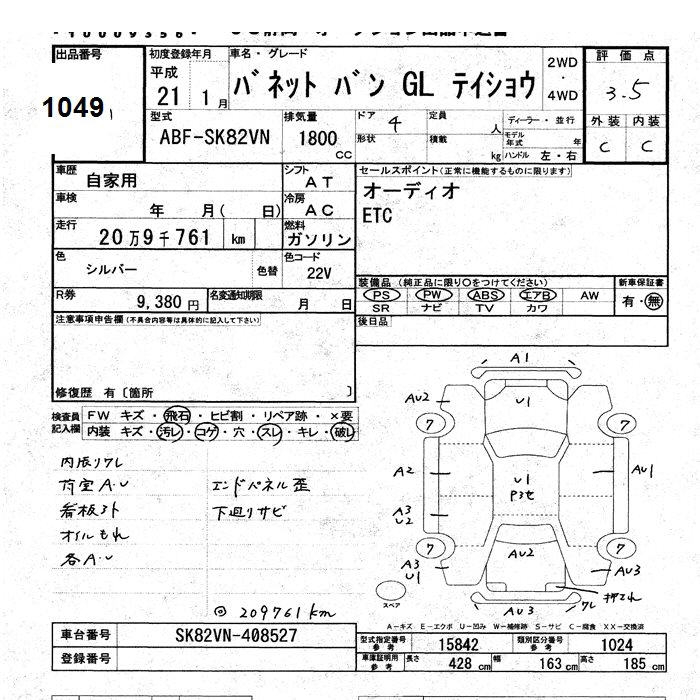 出品番号
1049
初度登録年月
平成
21 1月
車名・グレード
バネット バン GL テイショウ
2WD
・
4WD
評価点
3.5
外装 内装
C C
型式
ABF-SK82VN
排気量
1800
CC
ドア 4
形状
定員 人
積載 kg
ディーラー・並行
モデル年式 年
ハンドル 左・右
車歴
自家用
シフト
AT
車検
年 月( 日)
冷房
AC
走行
20万9千761 km
燃料
ガソリン
色
シルバー
色替
色コード
22V
R券
9,380円
名変通知期限
月 日
セールスポイント(正常に機能するものに限ります)
オーディオ
ETC
装備品(純正品に限り○をつけてください)
PS PW ABS エアB AW
SR ナビ TV カワ
新車保証書
有・無
後日品
注意事項申告欄(不具合内容等は具体的に記入して下さい)
修復歴 有〔箇所 〕
検査員
記入欄
FW キズ・飛石・ヒビ割・リペア跡・×要
内装 キズ・汚レ・コゲ・穴・スレ・キレ・破レ
内張リワレ
荷室A・U
看板アト
オイルもれ
各A・U
エンドパネル歪
下廻りサビ
◎ 209761km
A1
AU2
U1
7
7
A2
U1
AU1
A3
U2
7
7
AU2
A3
U1
AU3
AU3
ワレ
スペア
A-キズ E-エクボ U-凹み W-補修跡 S-サビ C-腐食 XX-交換済
車台番号
SK82VN-408527
登録番号
型式指定番号
参考
15842
類別区分番号
参考
1024
車庫証明用
参考
長さ 428 cm
幅 163 cm
高さ 185 cm